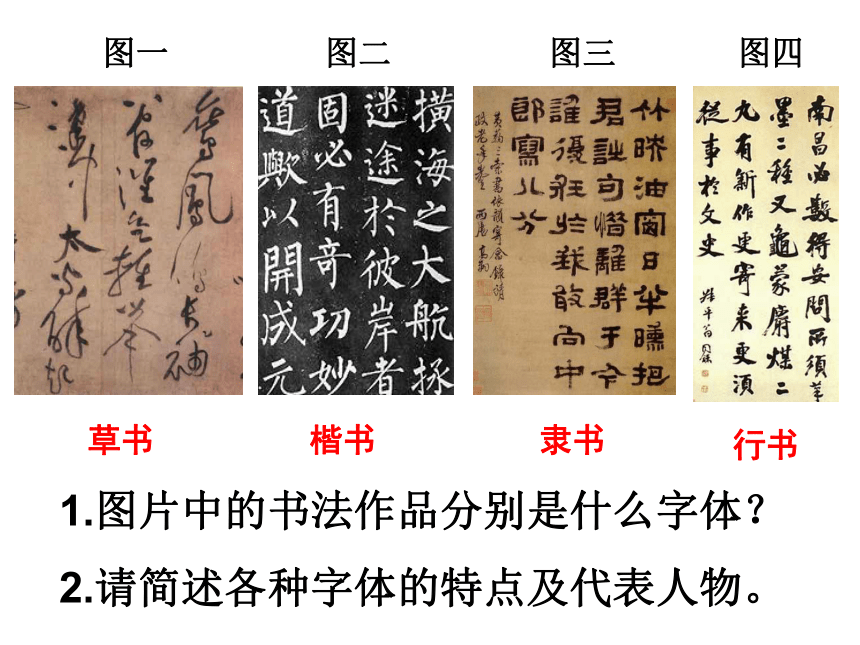 图一
图二
图三
图四
鸞鳳
橫海之大航拯
迷途於彼岸者
固必有奇功妙
道歟以開成元
竹映油窗日半曛把
君詩句惜離群于今
誰復狂於我敢向中
郎寫八分
南昌必數得安問所須筆
墨二種又龜蒙麝煤二
丸有新作更寄来更須
從事於文史
草书
楷书
隶书
行书
1.图片中的书法作品分别是什么字体？
2.请简述各种字体的特点及代表人物。